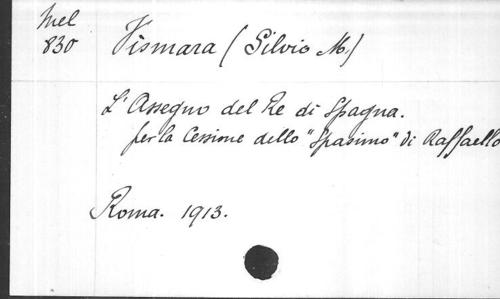 Mel
830
Vismara (Silvio M.)
L'Assegno del Re di Spagna.
per la Cessione dello "Spasimo" di Raffaello
Roma. 1913.